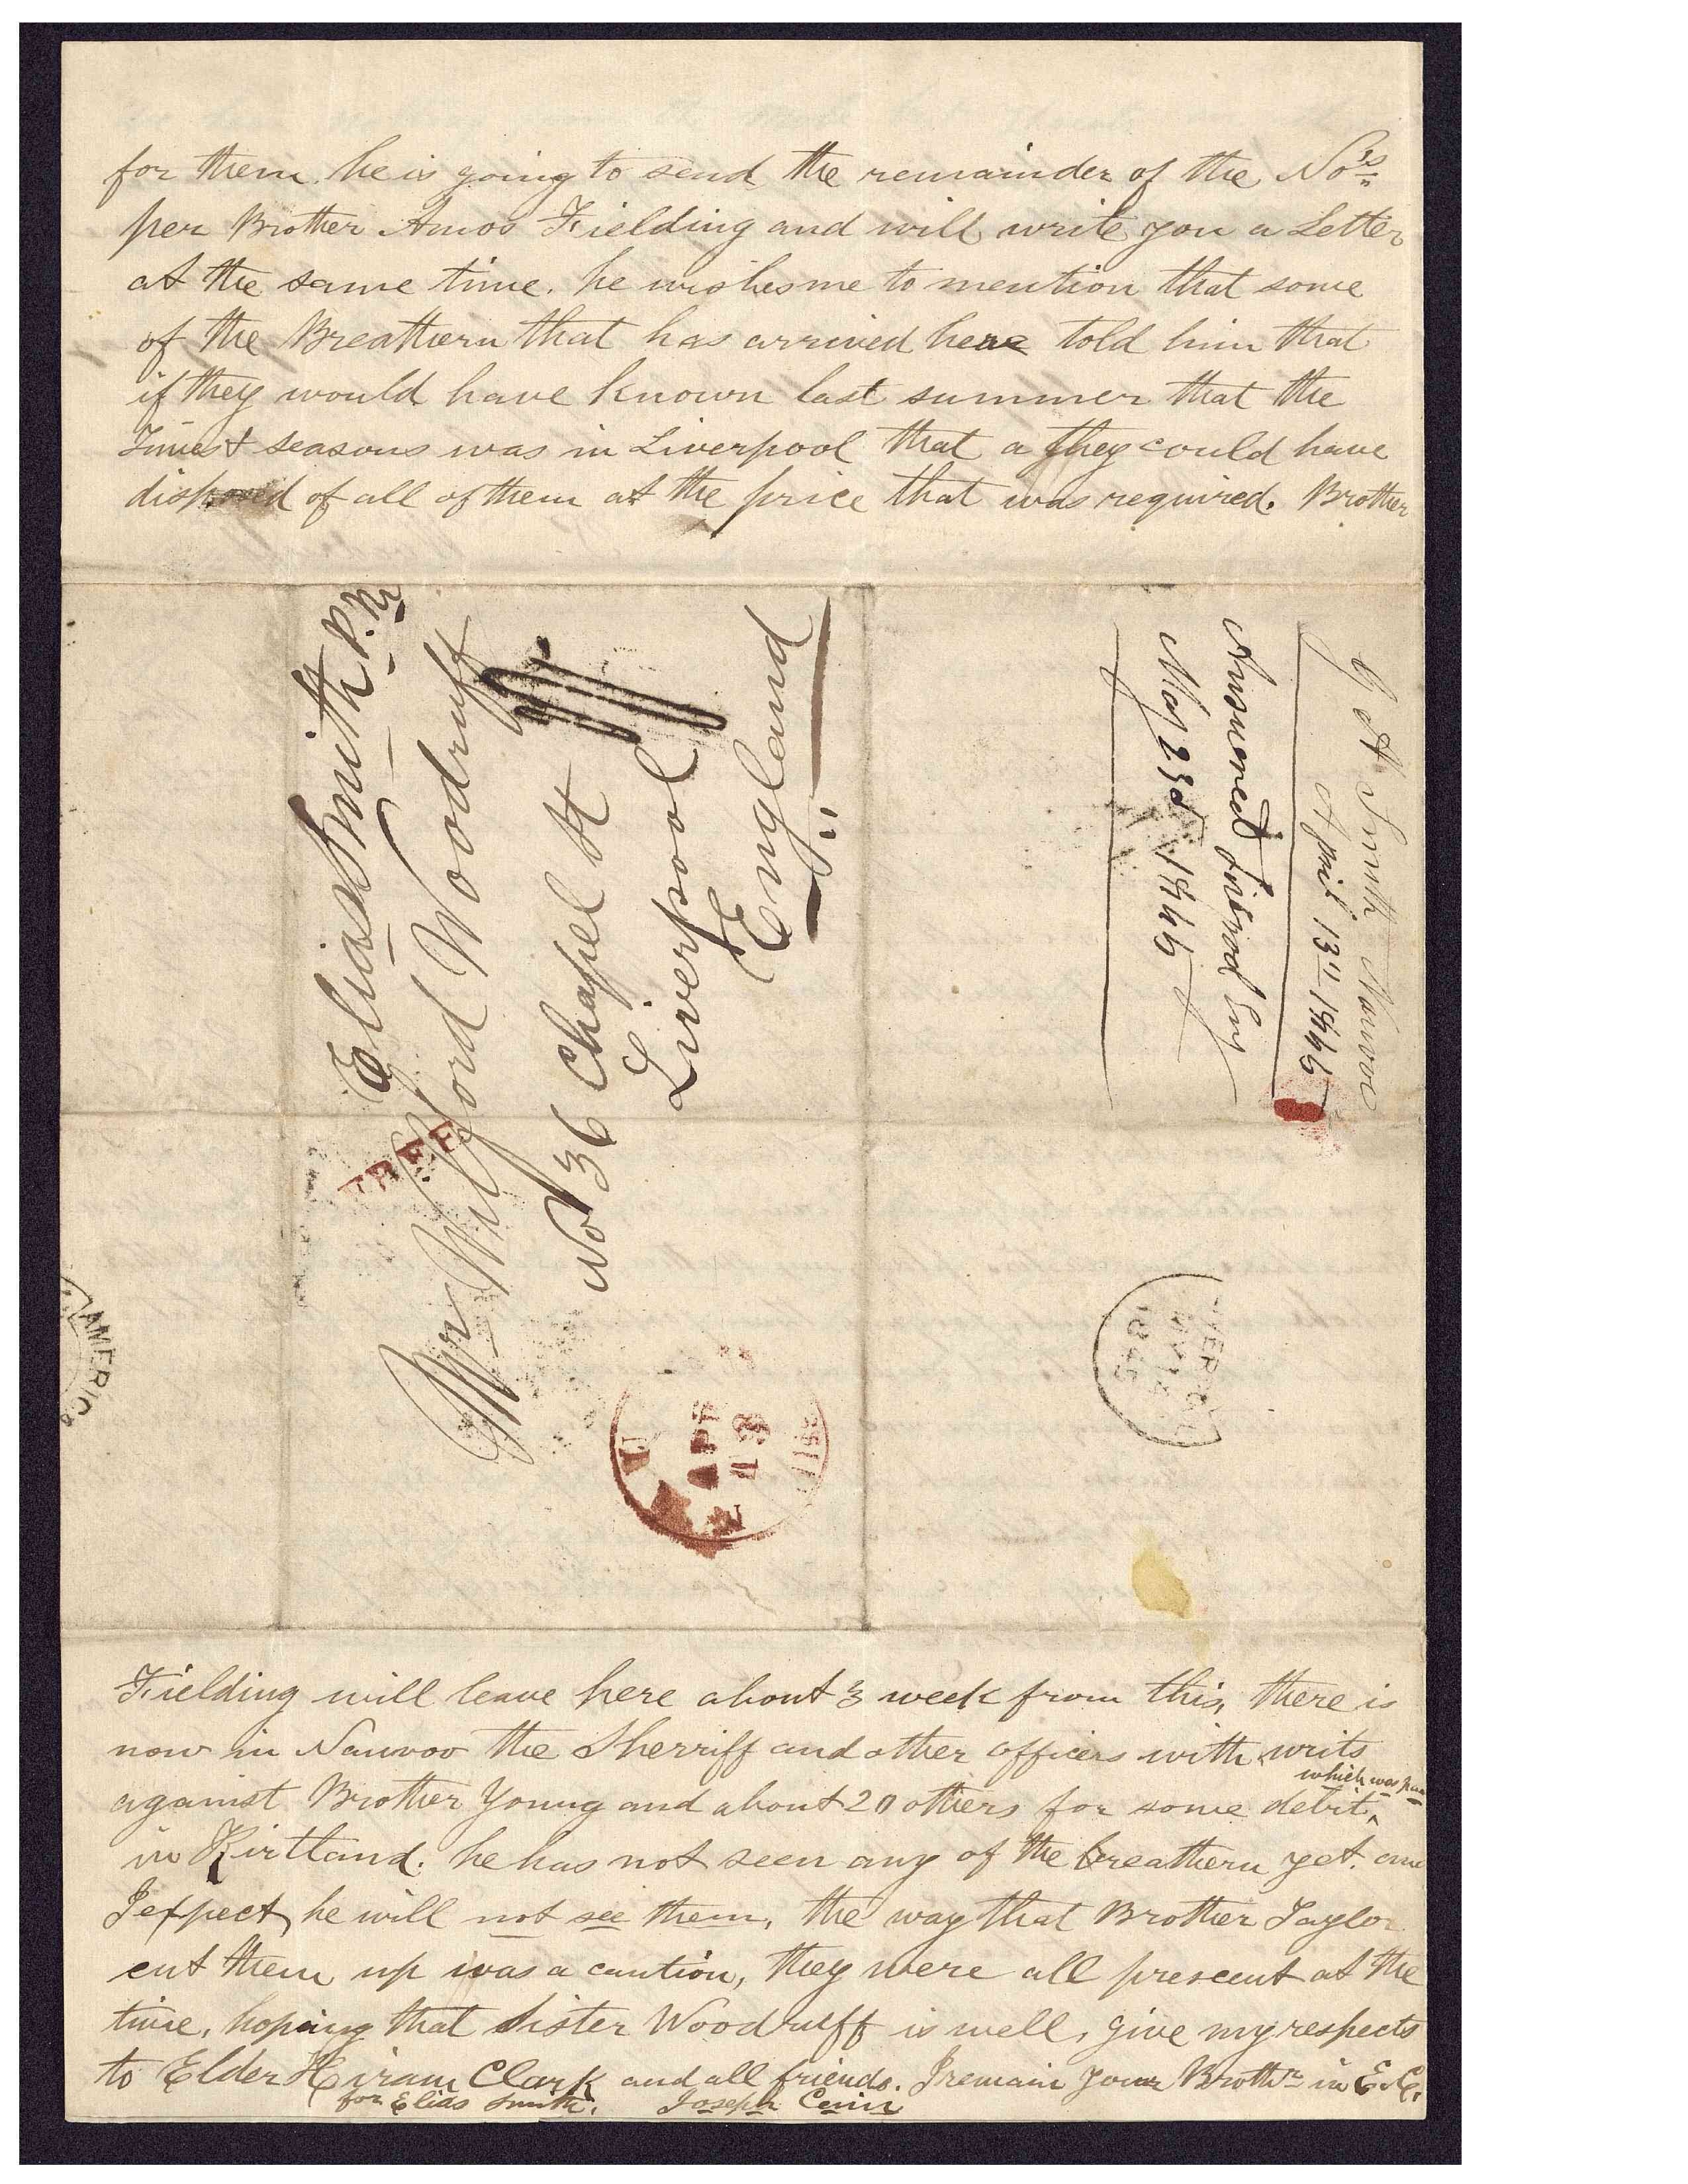 for them. he is going to send the remainder of the No's
per Brother Amos Fielding and will write you a Letter
at the same time. he wishes me to mention that some
of the Breathern that has arrived here told him that
if they would have known last summer that the
Times & seasons was in Liverpool that a they could have
disposed of all of them at the price that was required. Brother
Elias Smith P.M
Mr Wilford Woodruff
No 36 Chapel St
Liverpool
England
FREE
APR
13
Ills
AMERICA
G A Smith Nauvoo
April 13th 1845
Answered Liverpool Eng
May 23d 1845
LIVERPOOL
MY
1845
Fielding will leave here about 3 week from this, there is
now in Nauvoo the Sherriff and other officers with writs
against Brother Young and about 20 others for some debit
which was
in Kirtland. he has not seen any of the breathern yet. and
I expect he will not see them, the way that Brother Taylor
cut them up was a caution, they were all prescent at the
time, hoping that Sister Woodruff is well, give my respects
to Elder Hiram Clark and all friends. I remain your Brothr in E.C.
for Elias Smith. Joseph Cain